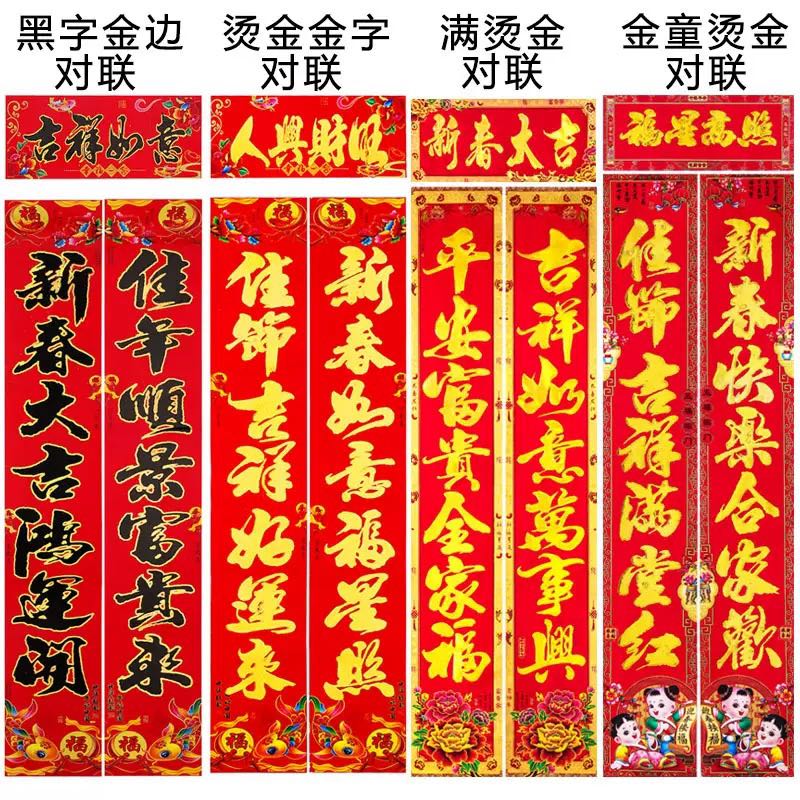 黑字金边
对联
烫金金字
对联
满烫金
对联
金童烫金
对联
吉祥如意
人興財旺
新春大吉
福星高照
福
福
福
福
新春大吉鸿運開
佳年順景富貴來
佳節吉祥好運來
新春如意福星照
平安富貴全家福
吉祥如意萬事興
佳節吉祥满堂红
新春快楽合家歡
福
福
福
福